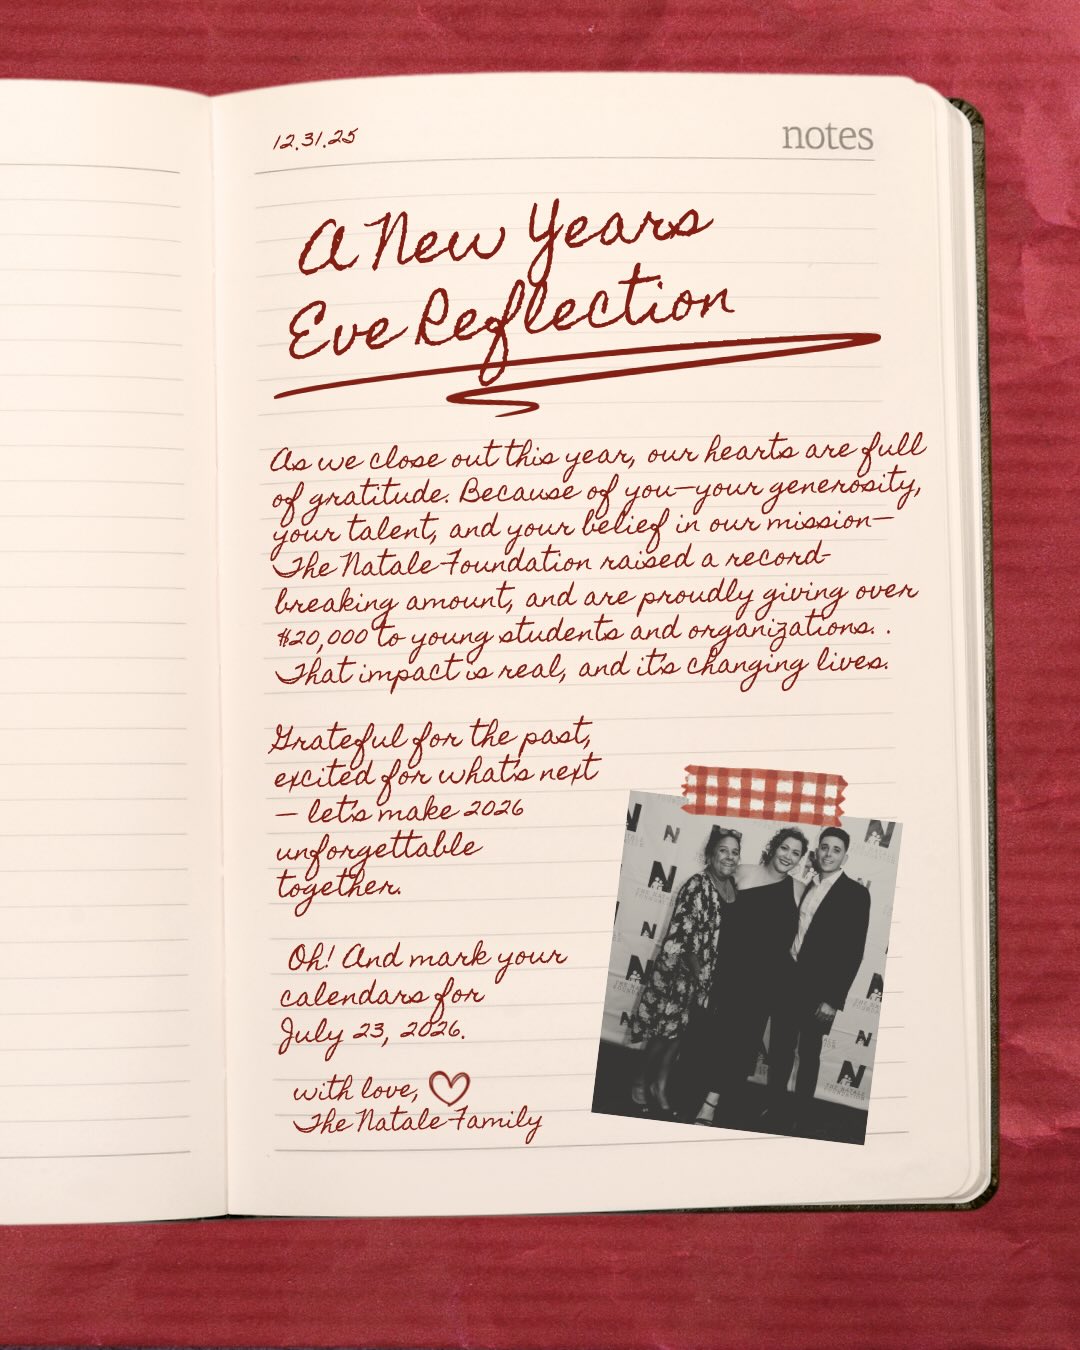 12.31.25
notes
A New Years
Eve Reflection
As we close out this year, our hearts are full
of gratitude. Because of you—your generosity,
your talent, and your belief in our mission—
The Natale Foundation raised a record-
breaking amount, and are proudly giving over
$20,000 to young students and organizations. .
That impact is real, and it's changing lives.
Grateful for the past,
excited for what's next
— let's make 2026
unforgettable
together.
Oh! And mark your
calendars for
July 23, 2026.
with love,
The Natale Family
N
THE NATALE
FOUNDATION